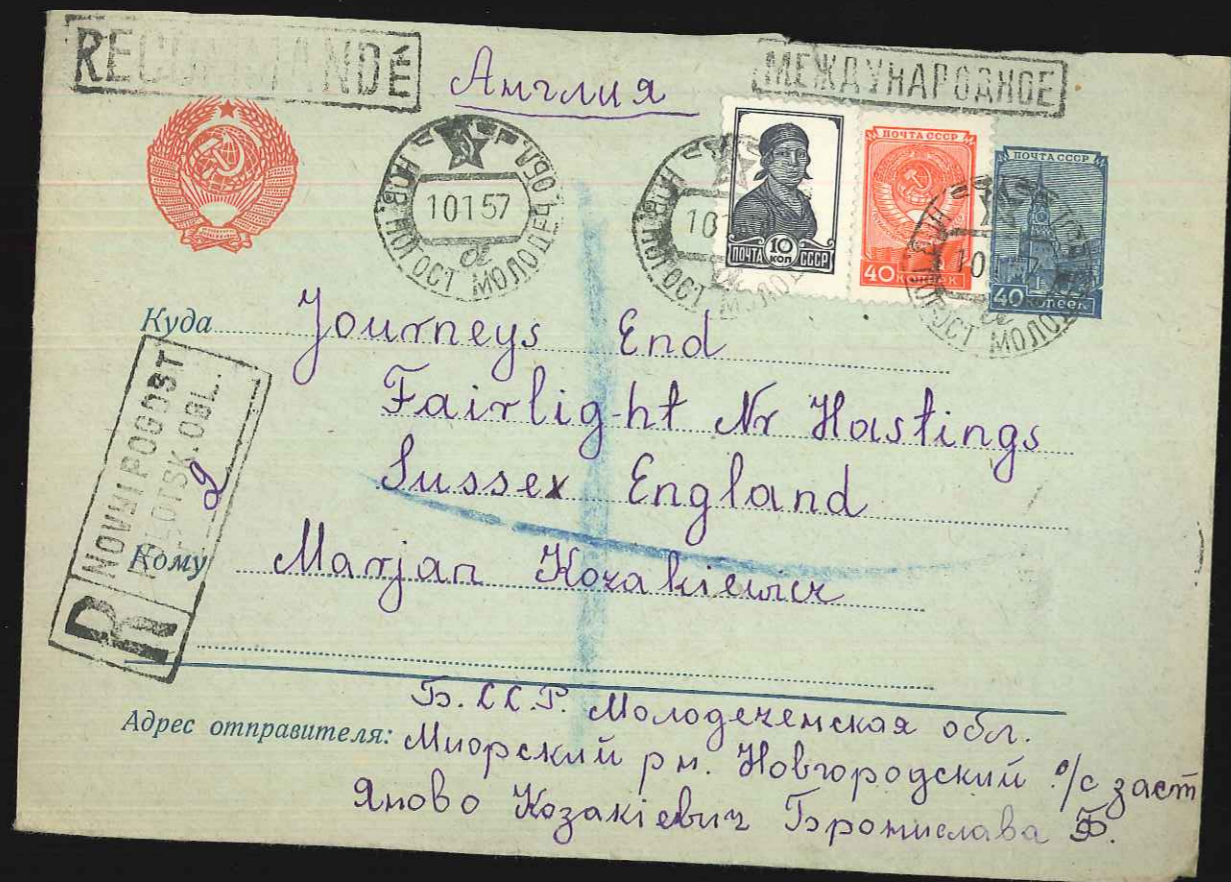 RECOMMANDÉ
Англия
МЕЖДУНАРОДНОЕ
НОВ. ПОГОСТ МОЛОДЕЧ. ОБЛ.
10 1 57
а
ПОЧТА 10 КОП СССР
ПОЧТА СССР
40 КОПЕЕК
ПОЧТА СССР
40 КОПЕЕК
Куда Journeys End
Fairlight Nr Hastings
Sussex England
Кому Marjan Kozakiewicz
R
NOVYI POGOST
POLOTSK.OBL.
2
Б.С.С.Р. Молодеченская обл.
Адрес отправителя: Миорский рн. Новгородский с/с заст
Яново Козакіевич Бронислава Б.